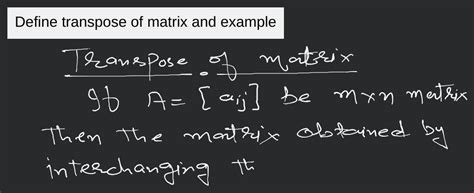 Define transpose of matrix and example
Transpose of matrix
If A = [aij] be m×n matrix
Then the matrix obtained by
interchanging th